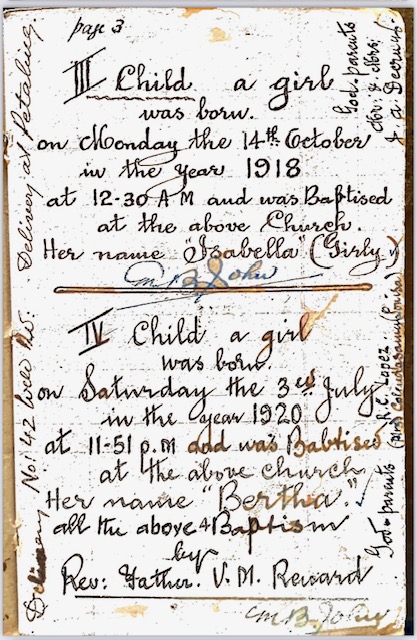 page 3
III Child a girl
was born.
on Monday the 14th October
in the year 1918
at 12-30 AM and was Baptised
at the above Church.
Her name "Isabella" (Girly.)
M B John
IV Child a girl
was born.
on Saturday the 3rd July
in the year 1920
at 11-51 p.m and was Babtised
at the above church
Her name "Bertha."
all the above 4 Baptism
by
Rev: Father. V. M. Reward
M B. John
God-parents
Mr: & Mrs:
J. a Decruz
God-parents R. C. Lopez.
Delivery at Petaling
Delivery No: 42